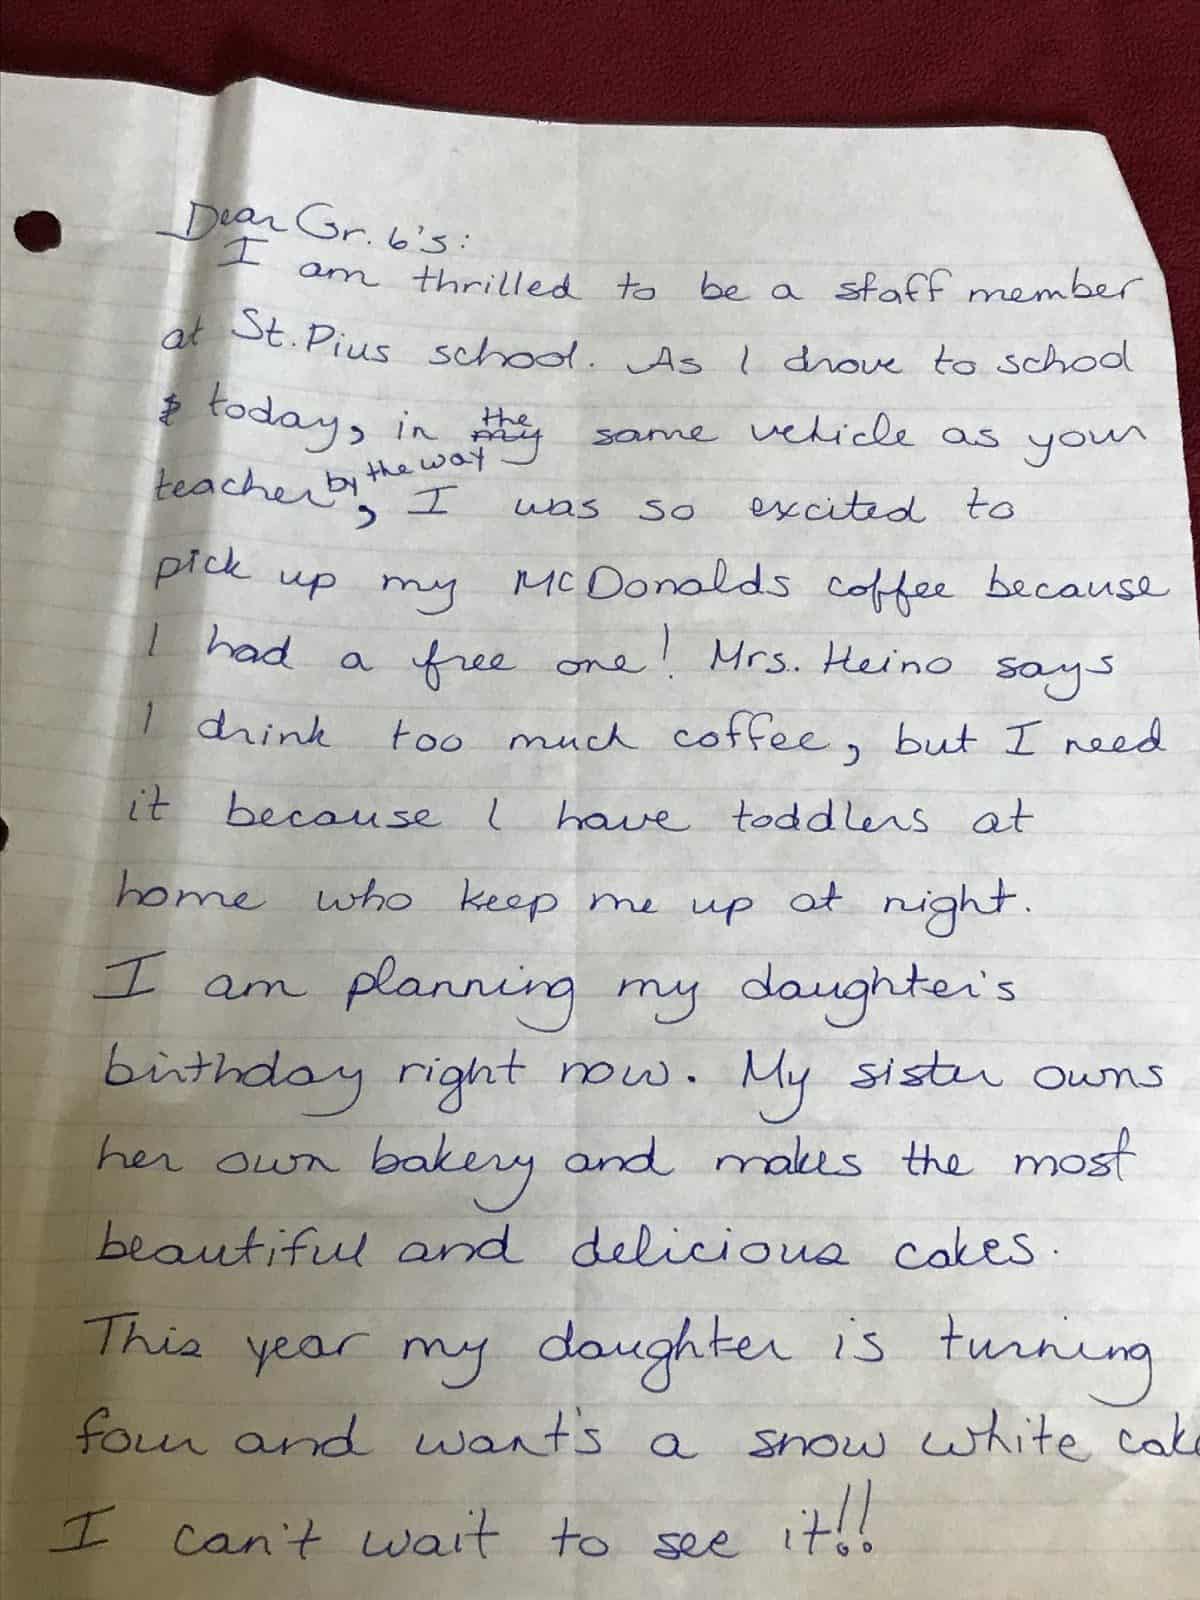 Dear Gr. 6's:
I am thrilled to be a staff member
at St. Pius school. As I drove to school
today, in the same vehicle as your
teacher by the way, I was so excited to
pick up my McDonalds coffee because
I had a free one! Mrs. Heino says
I drink too much coffee, but I need
it because I have toddlers at
home who keep me up at night.
I am planning my daughter's
birthday right now. My sister owns
her own bakery and makes the most
beautiful and delicious cakes.
This year my daughter is turning
four and want's a snow white cake
I can't wait to see it!!